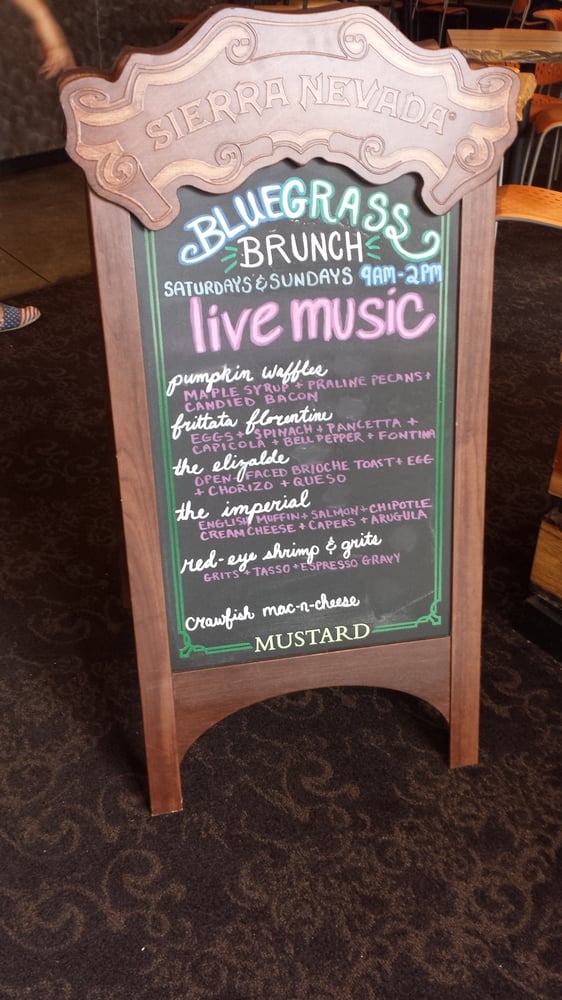 SIERRA NEVADA®
BLUEGRASS
BRUNCH
SATURDAYS & SUNDAYS 9AM-2PM
live music
pumpkin waffles
MAPLE SYRUP + PRALINE PECANS +
CANDIED BACON
frittata florentine
EGGS + SPINACH + PANCETTA +
CAPICOLA + BELL PEPPER + FONTINA
the elizalde
OPEN-FACED BRIOCHE TOAST + EGG
+ CHORIZO + QUESO
the imperial
ENGLISH MUFFIN + SALMON + CHIPOTLE
CREAM CHEESE + CAPERS + ARUGULA
red-eye shrimp & grits
GRITS + TASSO + ESPRESSO GRAVY
crawfish mac-n-cheese
MUSTARD